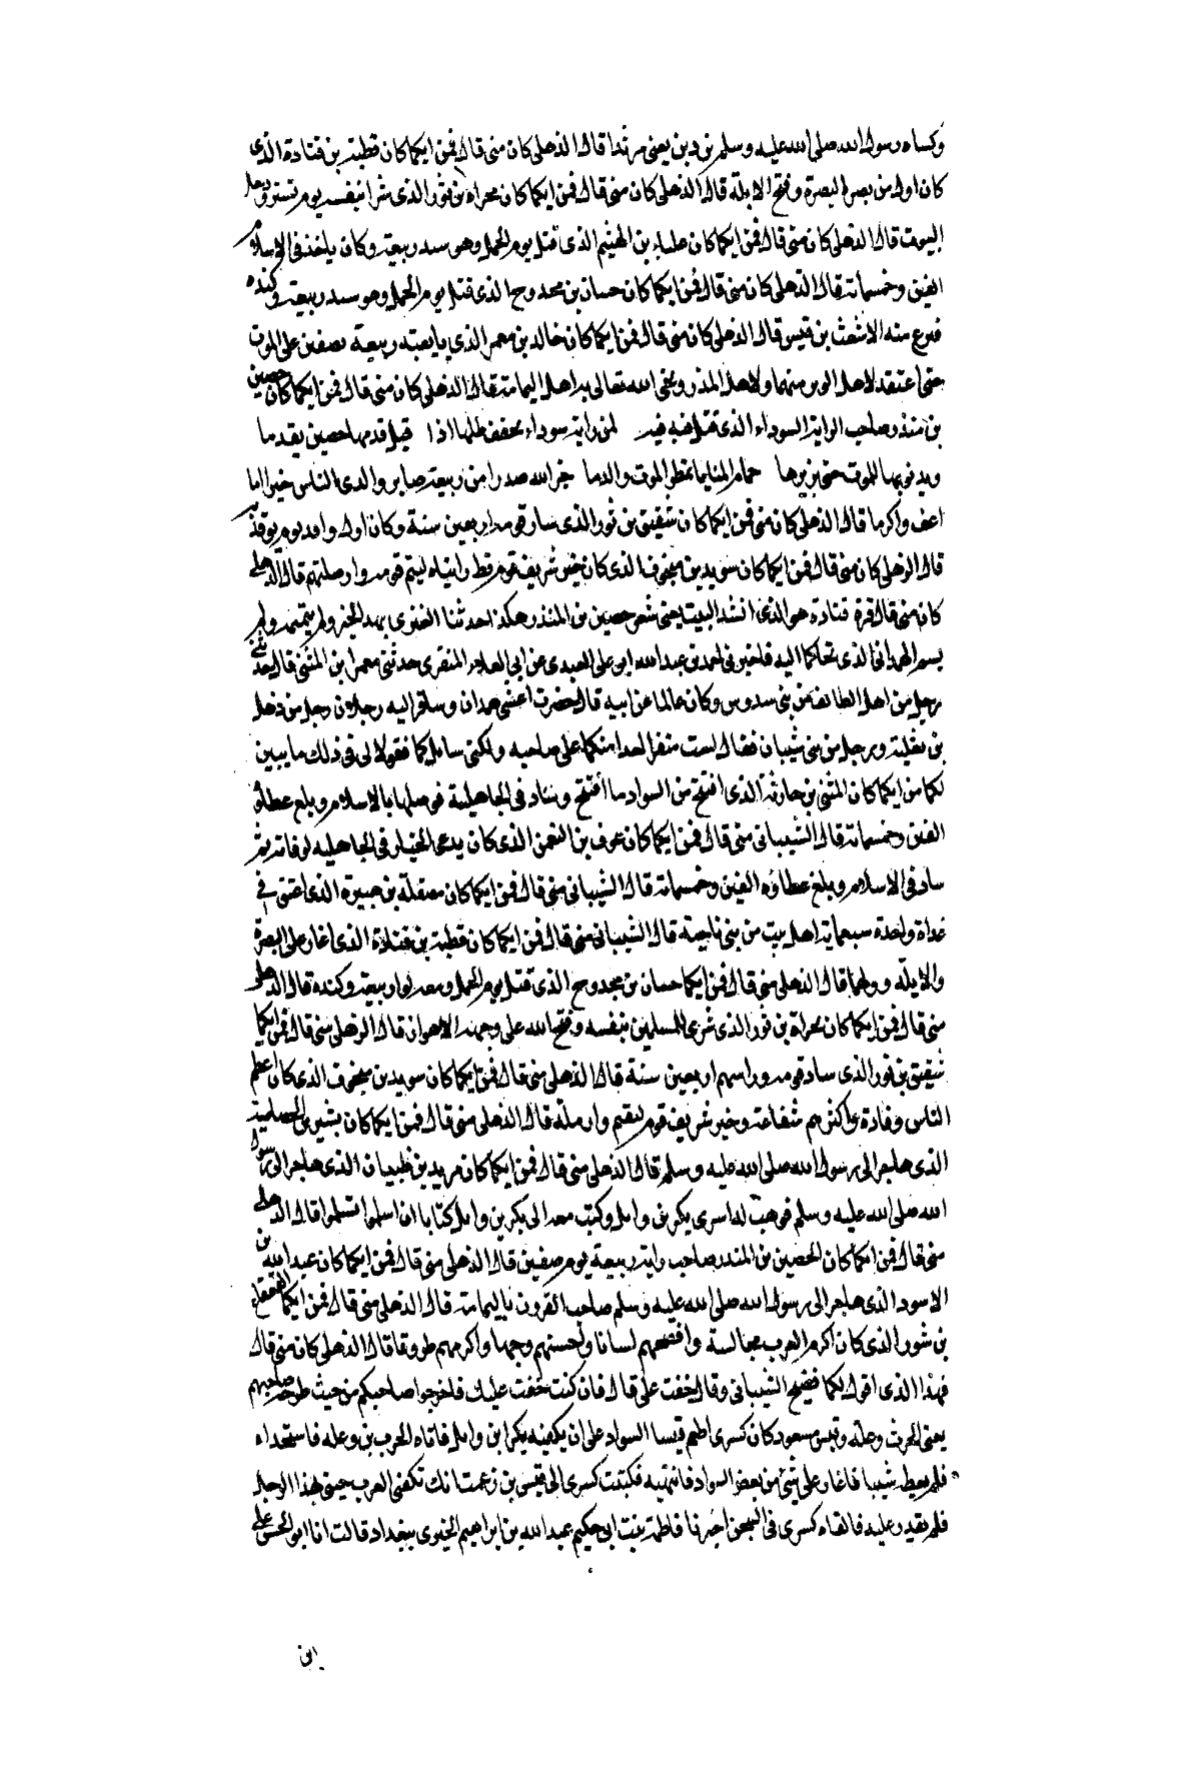 وكساه رسول الله صلى الله عليه وسلم بردين يعني مرثدا قال الذهلي كان مني قال فمن ايكما كان قطبة بن قتادة الذي
كان اول من بصر البصرة وفتح الابلة قال الذهلي كان مني قال فمن ايكما كان مجزاه بن ثور الذي شرا نفسه يوم تستر
قال الذهلي كان مني قال فمن ايكما كان علباء بن الهيثم الذي قتل يوم الجمل وهو سيد ربيعة وكان ياخذ في الاسلام
الفين وخمسماية قال الذهلي كان مني قال فمن ايكما كان حسان بن محدوج الذي قتل يوم الجمل وهو سيد ربيعة وكنده
منه الاشعث بن قيس قال الذهلي كان مني قال فمن ايكما كان خالد بن معمر الذي بايعته ربيعة بصفين على الموت
حتى اعتقد لاهل منهما ولاهل الله تعالى اهل اليمامة قال الذهلي كان مني قال فمن ايكما كان حصين
بن منذر صاحب الراية السوداء الذي فيه لمن راية سوداء يخفق ظلها اذا قيل قدمها حصين يقدما
ويدنو بها للموت حتى يزيرها حمام المنايا تقطر الموت والدما جزا الله صدرا من ربيعة صابروا لدى الناس خيرا ما
اعف واكرما قال الذهلي كان مني فمن ايكما كان شقيق بن ثور الذي ساد قومه اربعين سنة وكان اول وافد يوم
قال الذهلي كان مني قال فمن ايكما كان سويد بن منجوف الذي كان خير شريف قوم قط ليتيم قومه وارملتهم قال الذهلي
كان مني قال قرة قتادة هو الذي انشد البيت يعني شعر حصين بن المنذر هكذا حدثنا العنزي بهذا الخبر ولم يتممه ولم
يسم الهمداني الذي تحاكما اليه فاخبرني احمد بن عبد الله ابو علي العبدي عن ابي المنقري حدثني معمر ابن المثنى قال حدثني
رجل من اهل الطائف من بني سدوس وكان عالما عن ابيه قال حضرت اعشى همدان وسافر اليه رجلان رجل من ذهل
بن ثعلبة ورجل من بني شيبان فقال لست منفرا احدا منكما على صاحبه ولكني سايلكما فقولا لي في ذلك ما يبين
لكما من ايكما كان المثنى بن حارثة الذي افتتح من السواد ما افتتح وساد في الجاهلية فوصلها بالاسلام وبلغ عطاؤه
الفين وخمسماية قال الشيباني مني قال فمن ايكما كان عوف بن النعمن الذي كان يدعى الخيار في الجاهلية لوفائه ثم
ساد في الاسلام وبلغ عطاؤه الفين وخمسماية قال الشيباني مني قال فمن ايكما كان مصقلة بن هبيرة الذي اعتق في
غداة واحدة سبعماية اهل بيت من بني ناجية قال الشيباني مني قال فمن ايكما كان قطبة بن قتادة الذي اغار على البصرة
والابلة قال الذهلي مني قال فمن ايكما حسان بن محدوج الذي قتل يوم الجمل ومعه لوا ربيعة وكنده قال الذهلي
مني قال فمن ايكما كان مجزاة بن ثور الذي شرى للمسلمين بنفسه وفتح الله على وجهه الاهواز قال الذهلي مني قال فمن ايكما
شقيق بن ثور الذي ساد قومه وراسهم اربعين سنة قال الذهلي مني قال فمن ايكما كان سويد بن منجوف الذي كان اعظم
الناس وفادة واكثرهم شفاعة وخير شريف قوم ليتيم وارملة قال الذهلي مني قال فمن ايكما كان بشير بن الخصاصية
الذي هاجر الى رسول الله صلى الله عليه وسلم قال الذهلي مني قال فمن ايكما كان مرثد بن ظبيان الذي هاجر الى رسول
الله صلى الله عليه وسلم فوهب له اسرى بكر بن وايل وكتب معه الى بكر بن وايل كتابا ان اسلموا تسلموا قال الذهلي
مني قال فمن ايكما كان الحصين بن المنذر صاحب راية ربيعة يوم صفين قال الذهلي مني قال فمن ايكما كان عبد الله بن
الاسود الذي هاجر الى رسول الله صلى الله عليه وسلم صاحب القرون باليمامة قال الذهلي مني قال فمن ايكما القعقاع
بن شور الذي كان اكرم العرب مجالسة وافصحهم لسانا واحسنهم وجها واكرمهم طروقا قال الذهلي كان مني قال
فهذا الذي اقول لكما الشيباني وقال خفت علي قال فان كنت خفت عليك فاخرجوا صاحبكم من حيث طرح صاحبهم
يعني الحرث وعلة وقيس مسعود كان كسرى اطعم قيسا السواد على ان يكفيه بكر ابن وايل فاتاه الحرب بن وعله فاستجداه
فلم يعطه شيا فاغار على شيء من بعض السواد فانتهبه فكتب كسرى الى قيس بن زعمت انك تكفني العرب جيني بهذا الرجل
فلم يقدر عليه فالقاه كسرى في السجن اخبرنا فاطمة بنت ابي حكيم عبد الله بن ابراهيم الخبري ببغداد قالت انا ابو الحسن علي
ابن